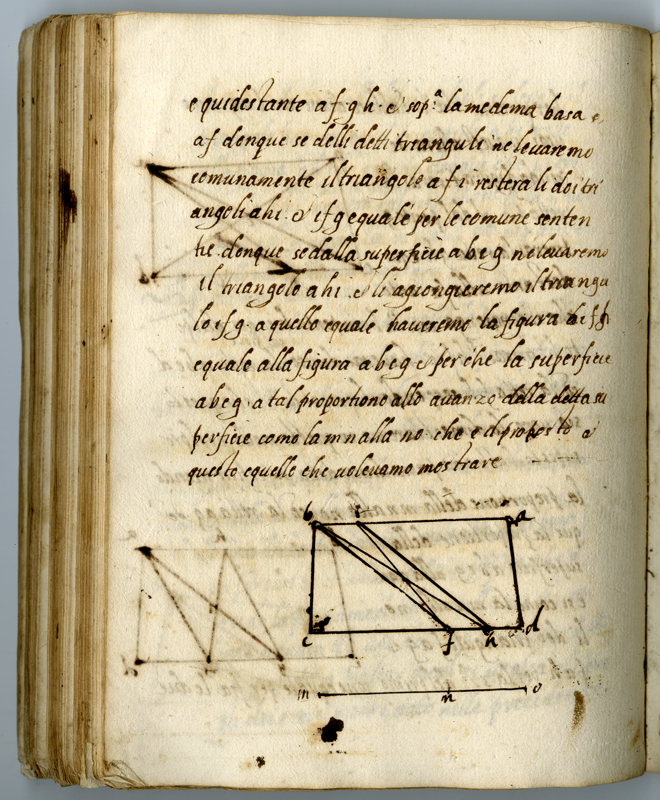 equidestante a f. g h. & sop.ª la medema basa e,
a f donque se delli detti trianguli ne levaremo
comunamente il triangolo a f i restera li doi tri
angoli a h i. & i f g equale per le comune senten
tie donque se dalla superficie a b e g ne levaremo
il triangolo a h i. & li agiongieremo il triangu
lo i f g. a quello equale haveremo la figura
equale alla figura a b e g & perche la superficie
a b e g. a tal proportione allo avanzo della detta su
perficie como la m n alla n o. che e il proposto &
questo e quello che volevamo mostrare
b a
c f h d
m n o